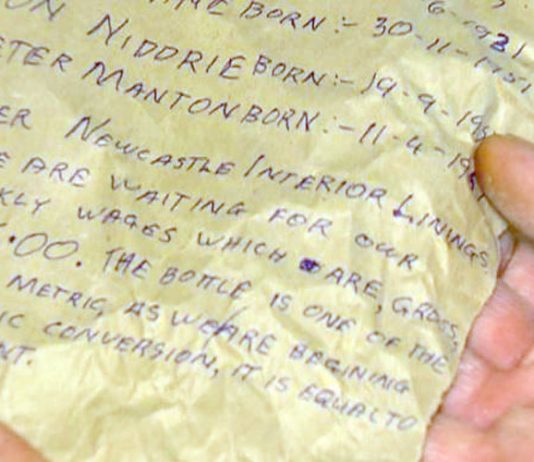 BORN:- 6-1931
ON NIDDRIE BORN:- 30-11-1951
ETER MANTON BORN:- 19-9-195
ER NEWCASTLE INTERIOR LININGS. 11-4-19
E ARE WAITING FOR OUR
KLY WAGES WHICH ARE, GROSS,
.00. THE BOTTLE IS ONE OF THE
METRIC, AS WE ARE BEGINING
IC CONVERSION, IT IS EQUAL TO
NT.